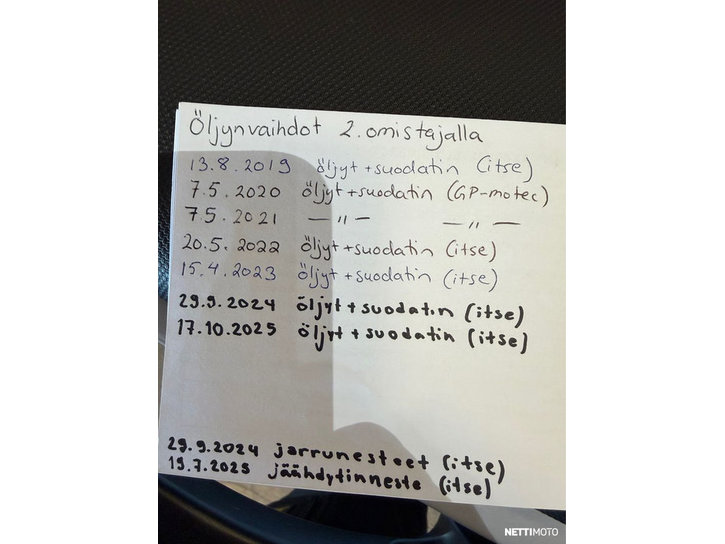 Öljynvaihdot 2. omistajalla
13.8.2019 öljyt + suodatin (itse)
7.5.2020 öljyt + suodatin (GP-motec)
7.5.2021 — 〃 — — 〃 —
20.5.2022 öljyt + suodatin (itse)
15.4.2023 öljyt + suodatin (itse)
29.9.2024 öljyt + suodatin (itse)
17.10.2025 öljyt + suodatin (itse)
29.9.2024 jarrunesteet (itse)
19.7.2025 jäähdytinneste (itse)
NETTIMOTO